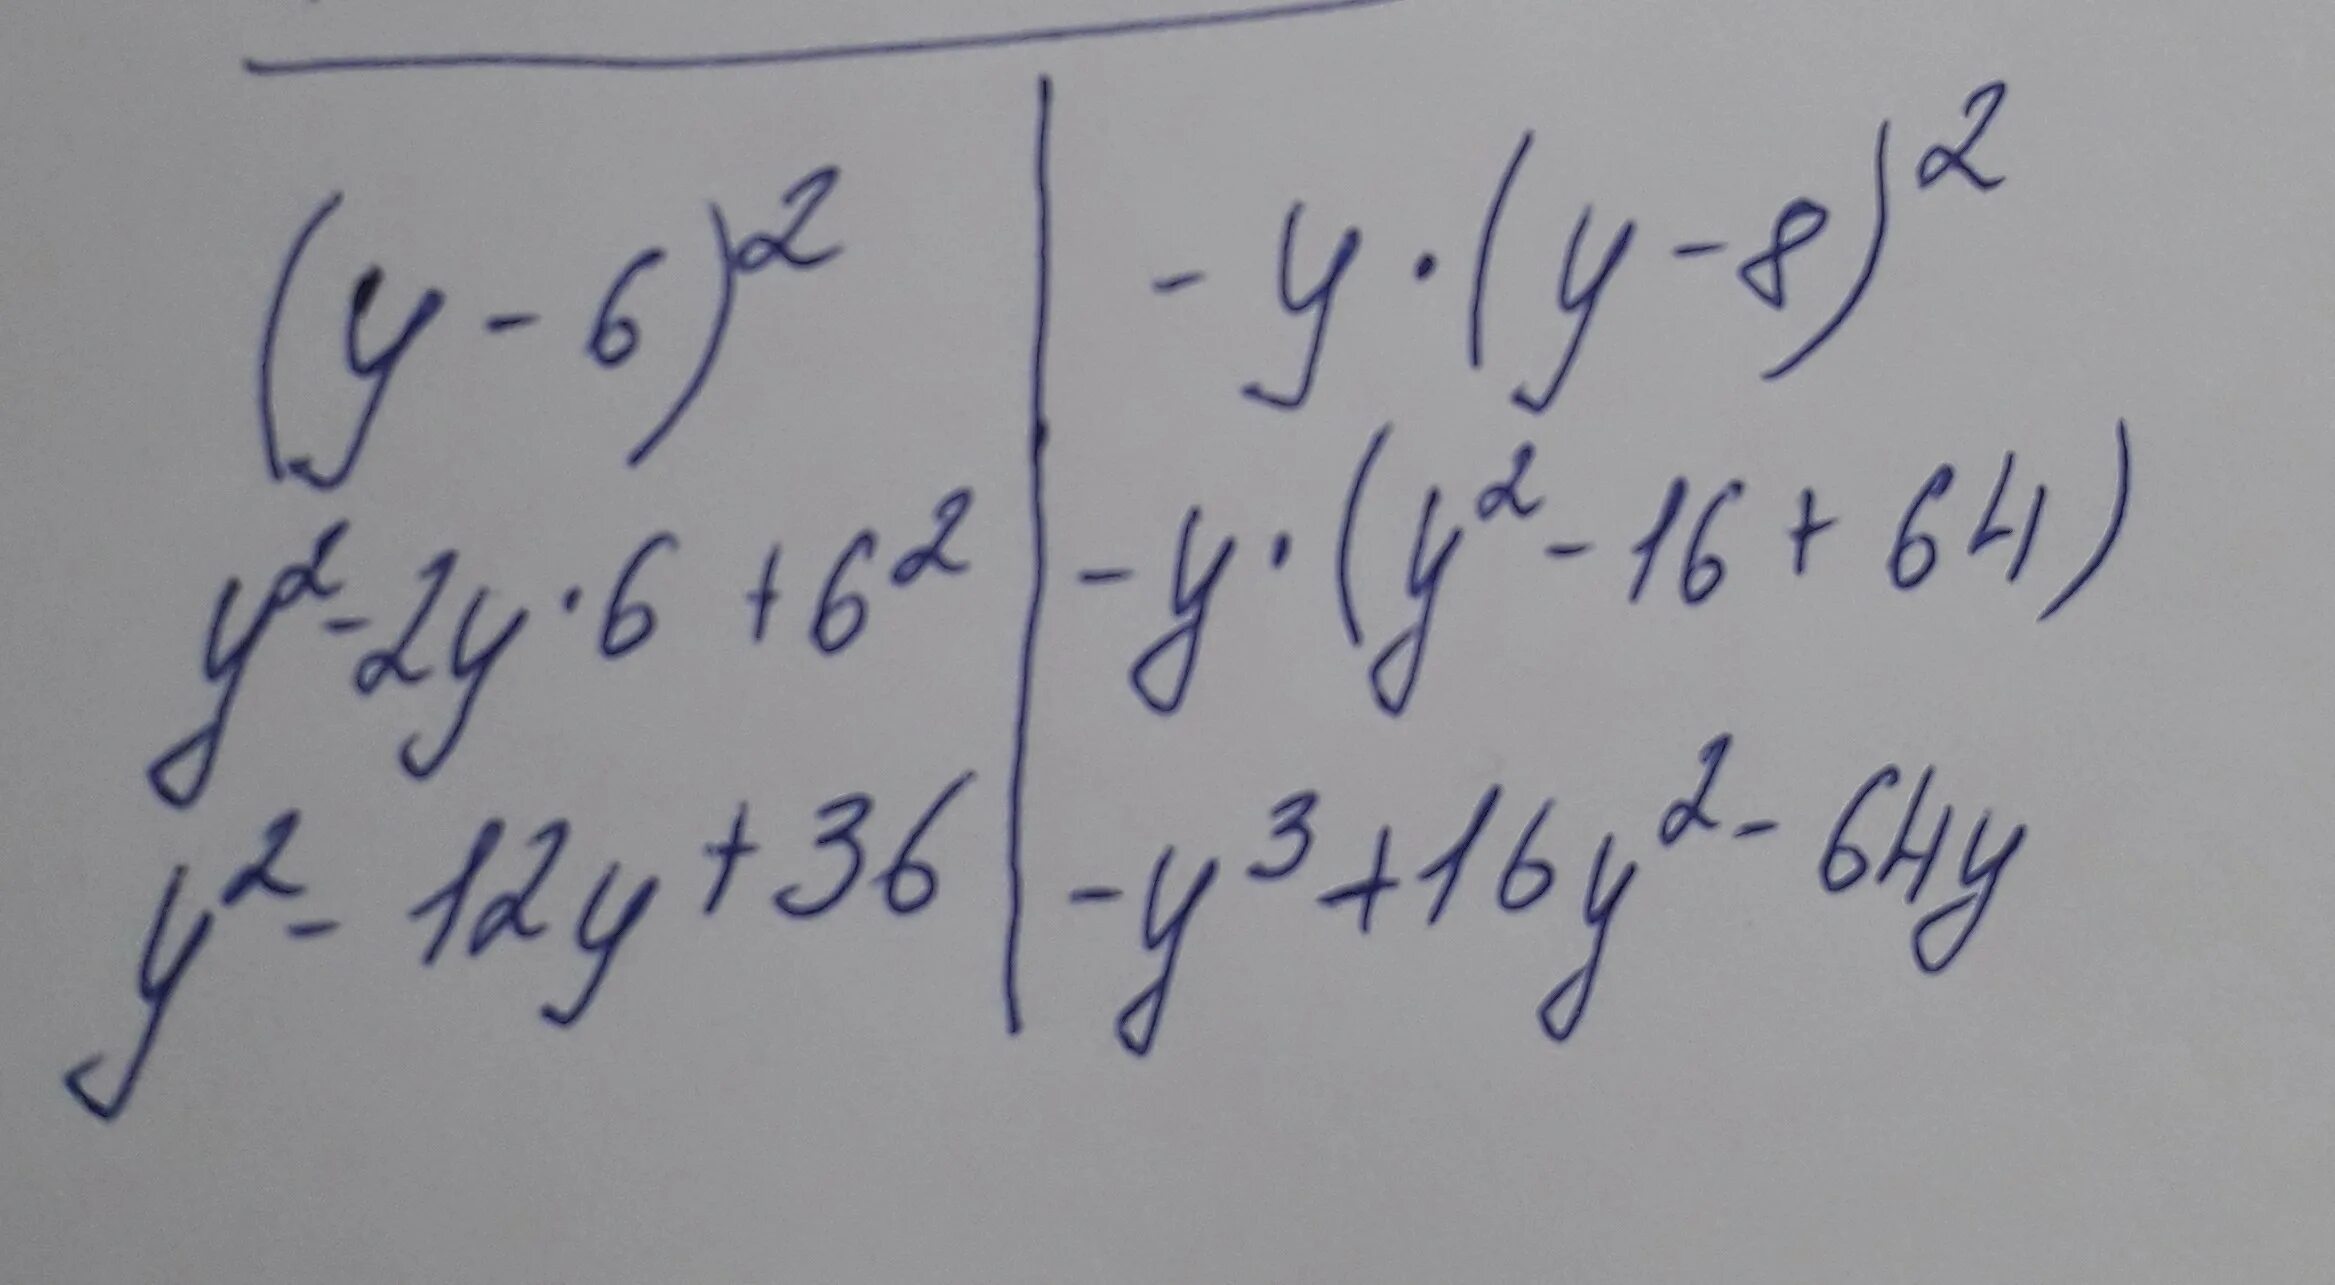 (y - 6)²
y² - 2y · 6 + 6²
y² - 12y + 36
- y · (y - 8)²
- y · (y² - 16 + 64)
- y³ + 16y² - 64y